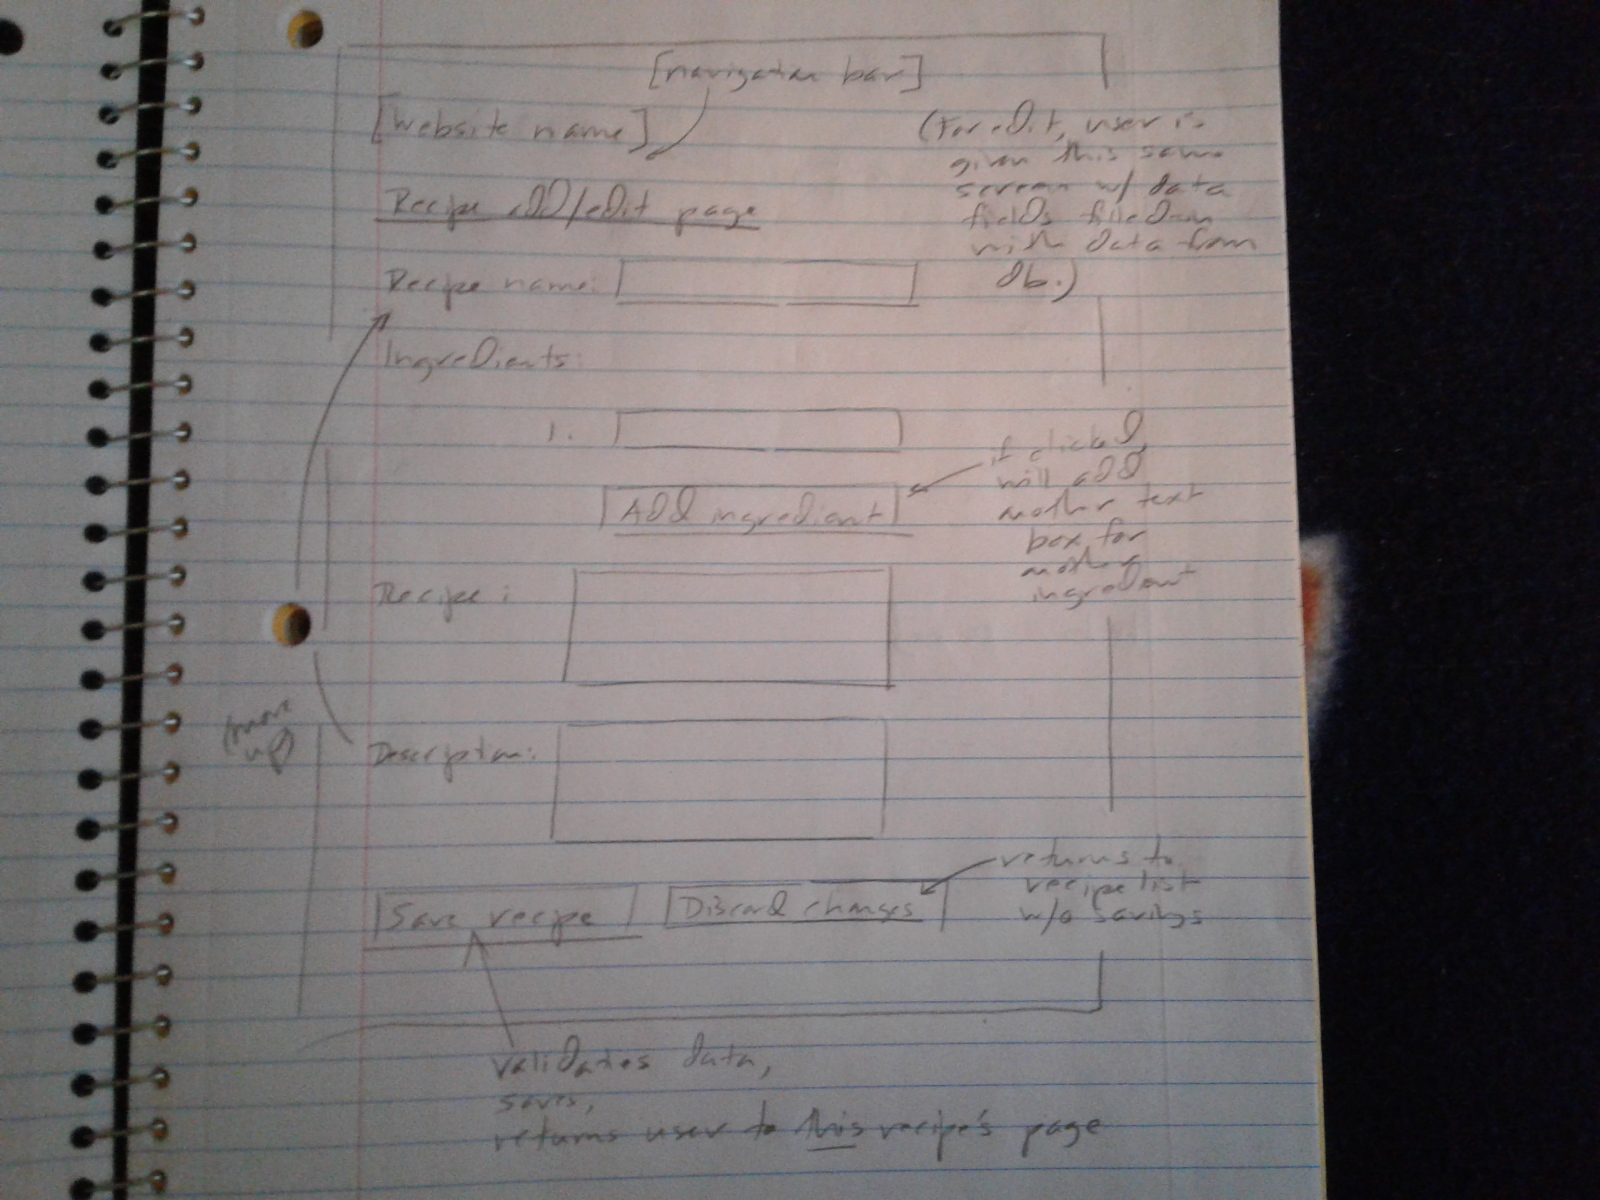 [navigation bar]
[website name]
(For edit, user is
given this same
screen w/ data
fields filled in
with data from
db.)
Recipe add/edit page
Recipe name:
Ingredients:
1.
Add ingredient
if clicked
will add
another text
box for
another
ingredient
Recipe:
Description:
move
up
Save recipe
Discard changes
returns to
recipe list
w/o saving
validates data,
saves,
returns user to this recipe's page